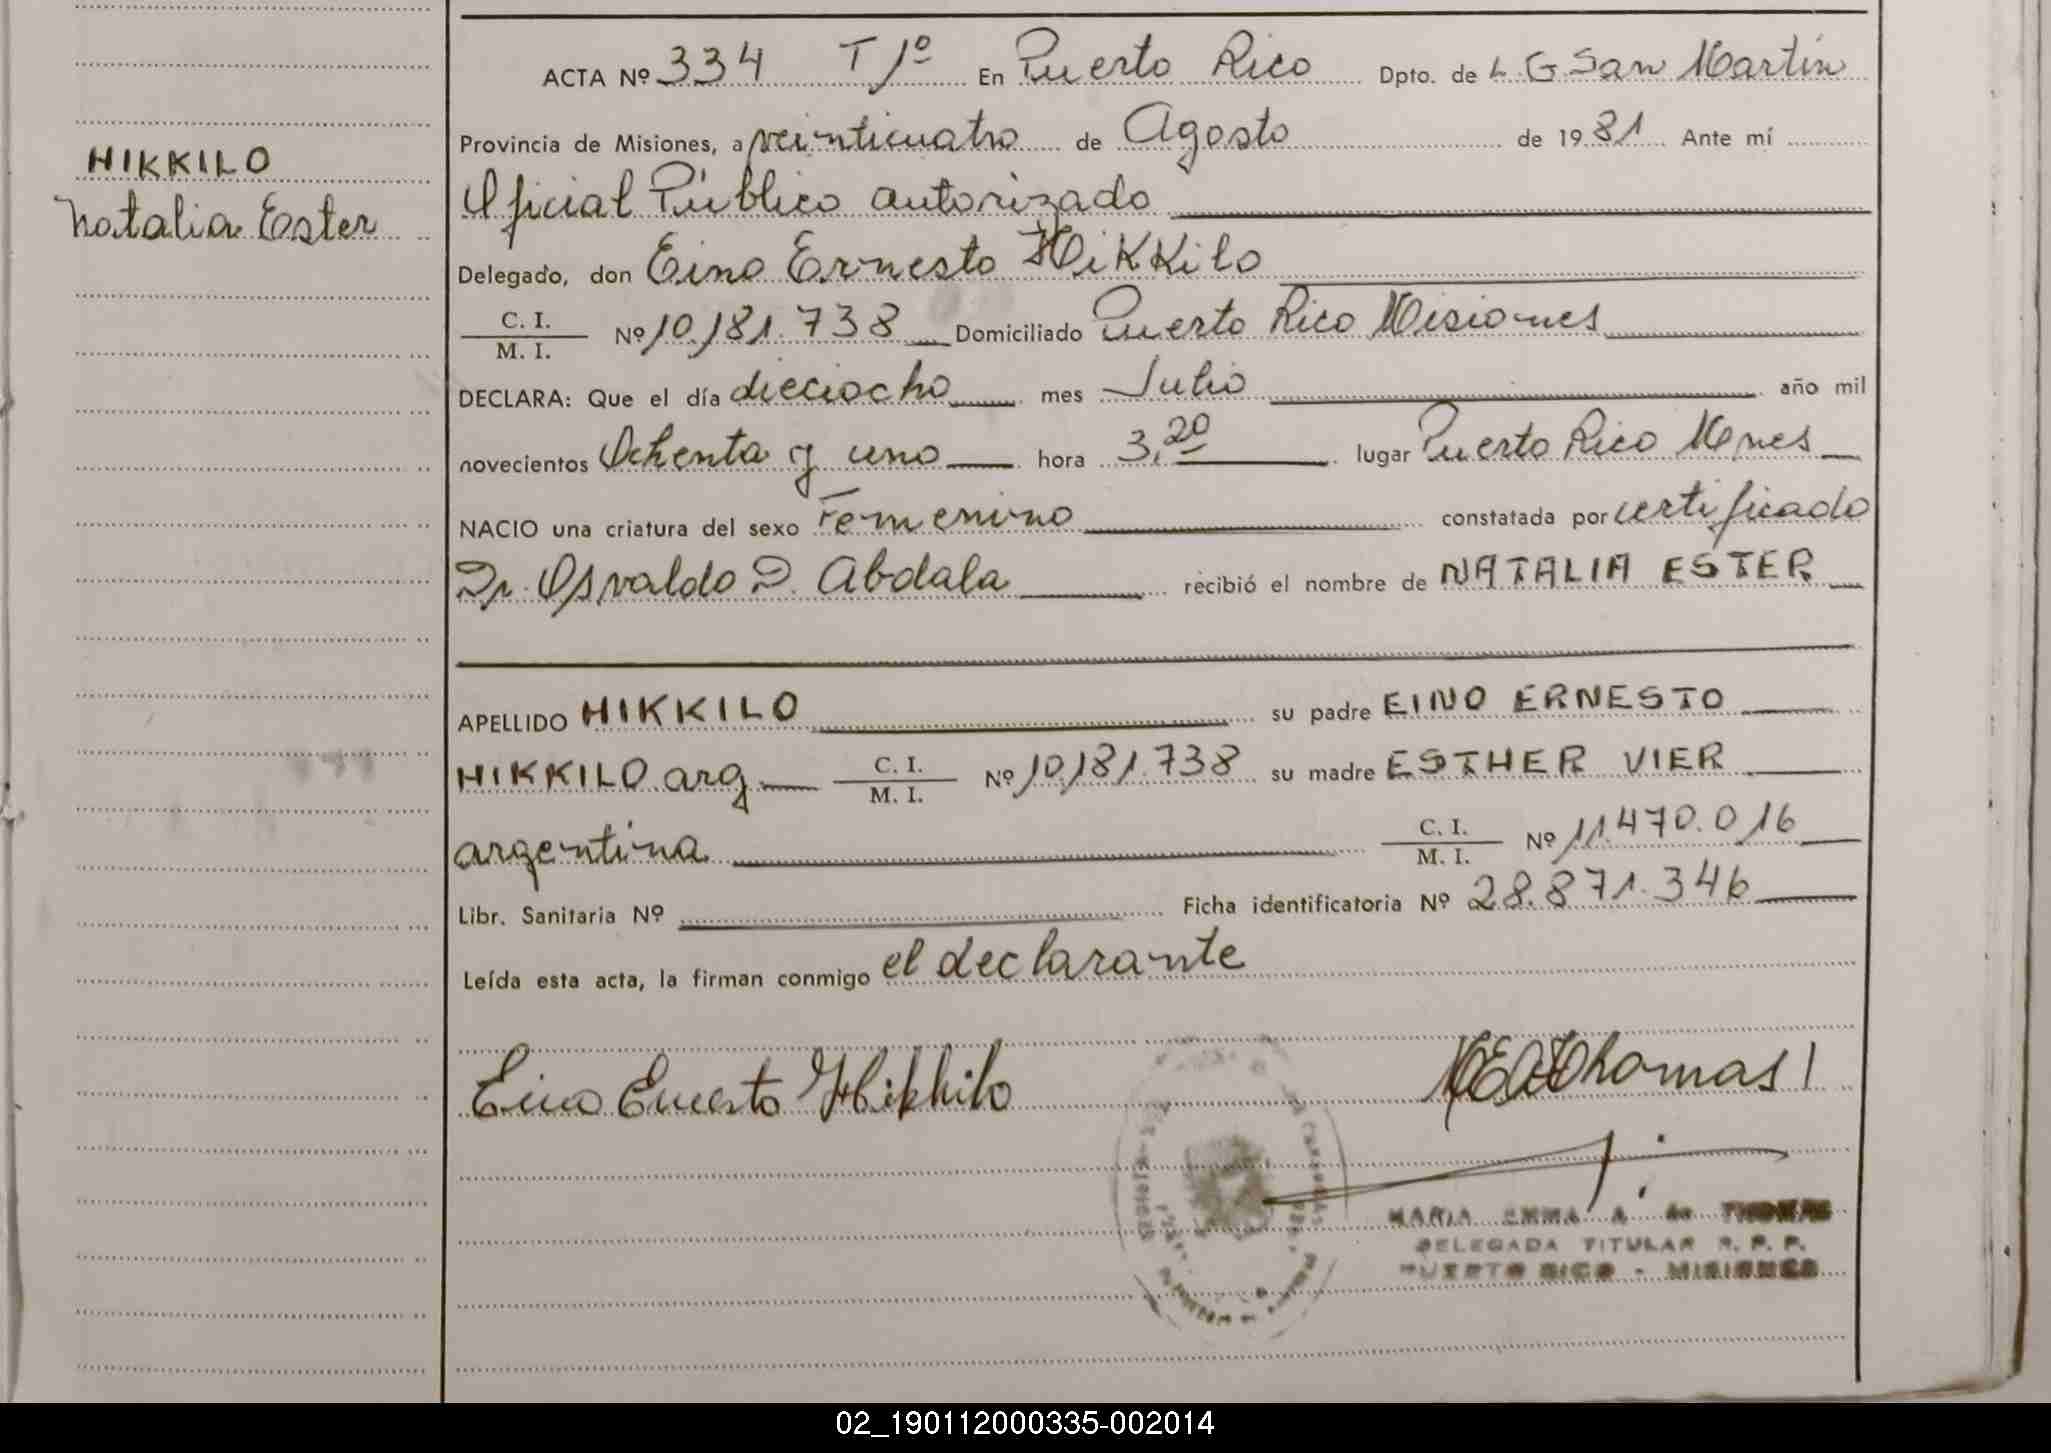 HIKKILO
Natalia Ester
ACTA Nº 334 T 1º En Puerto Rico Dpto. de L. G San Martín
Provincia de Misiones, a veinticuatro de Agosto de 1981 Ante mí
Oficial Público autorizado
Delegado, don Eino Ernesto Hikkilo
C. I.
M. I. Nº 10.181.738 Domiciliado Puerto Rico Misiones
DECLARA: Que el día dieciocho mes Julio año mil
novecientos Ochenta y uno hora 3,20 lugar Puerto Rico Mnes
NACIO una criatura del sexo Femenino constatada por certificado
Dr. Osvaldo D. Abdala recibió el nombre de NATALIA ESTER
APELLIDO HIKKILO su padre EINO ERNESTO
HIKKILO arg C. I.
M. I. Nº 10.181.738 su madre ESTHER VIER
argentina C. I.
M. I. Nº 11.470.016
Libr. Sanitaria Nº Ficha identificatoria Nº 28.871.346
Leída esta acta, la firman conmigo el declarante
Eino Ernesto Hikkilo
Thomas
MARIA EMMA A de THOMAS
DELEGADA TITULAR R. P. P.
PUERTO RICO - MISIONES
02_190112000335-002014